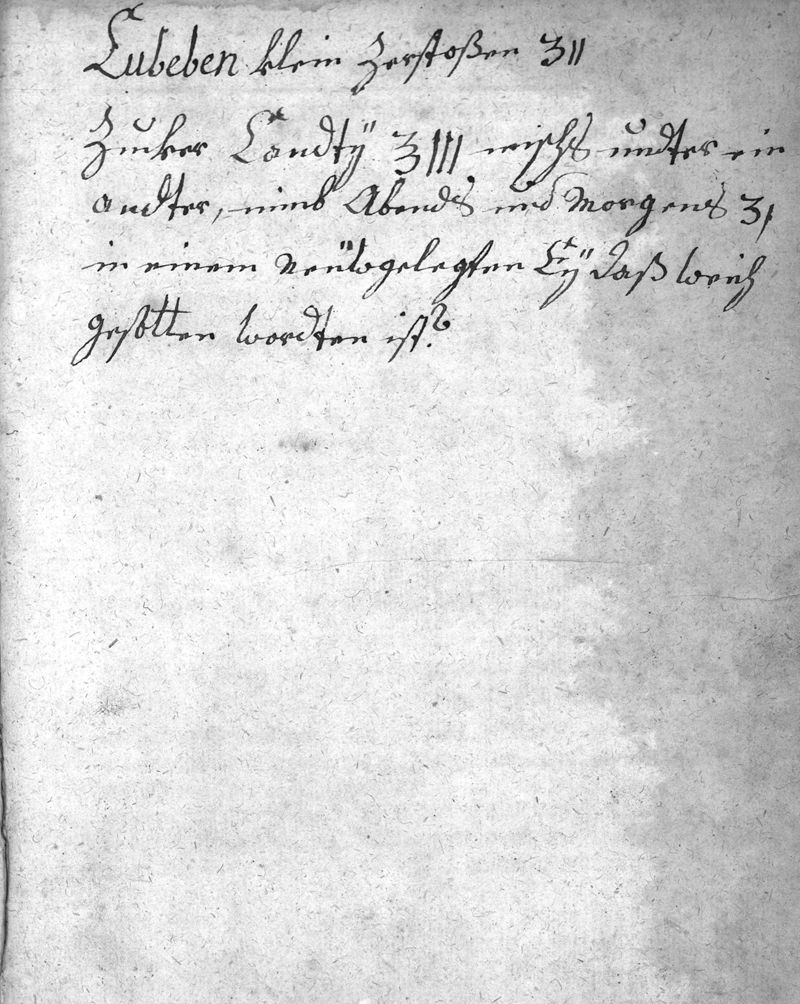 Cubeben klein Zerstoßen ʒII
Zucker Candtÿ ʒIII mischs undter ein
andter, nimb Abends und Morgens ʒI
in einem Neüwgelegten Eÿ daß weich
gesotten wordten ist.